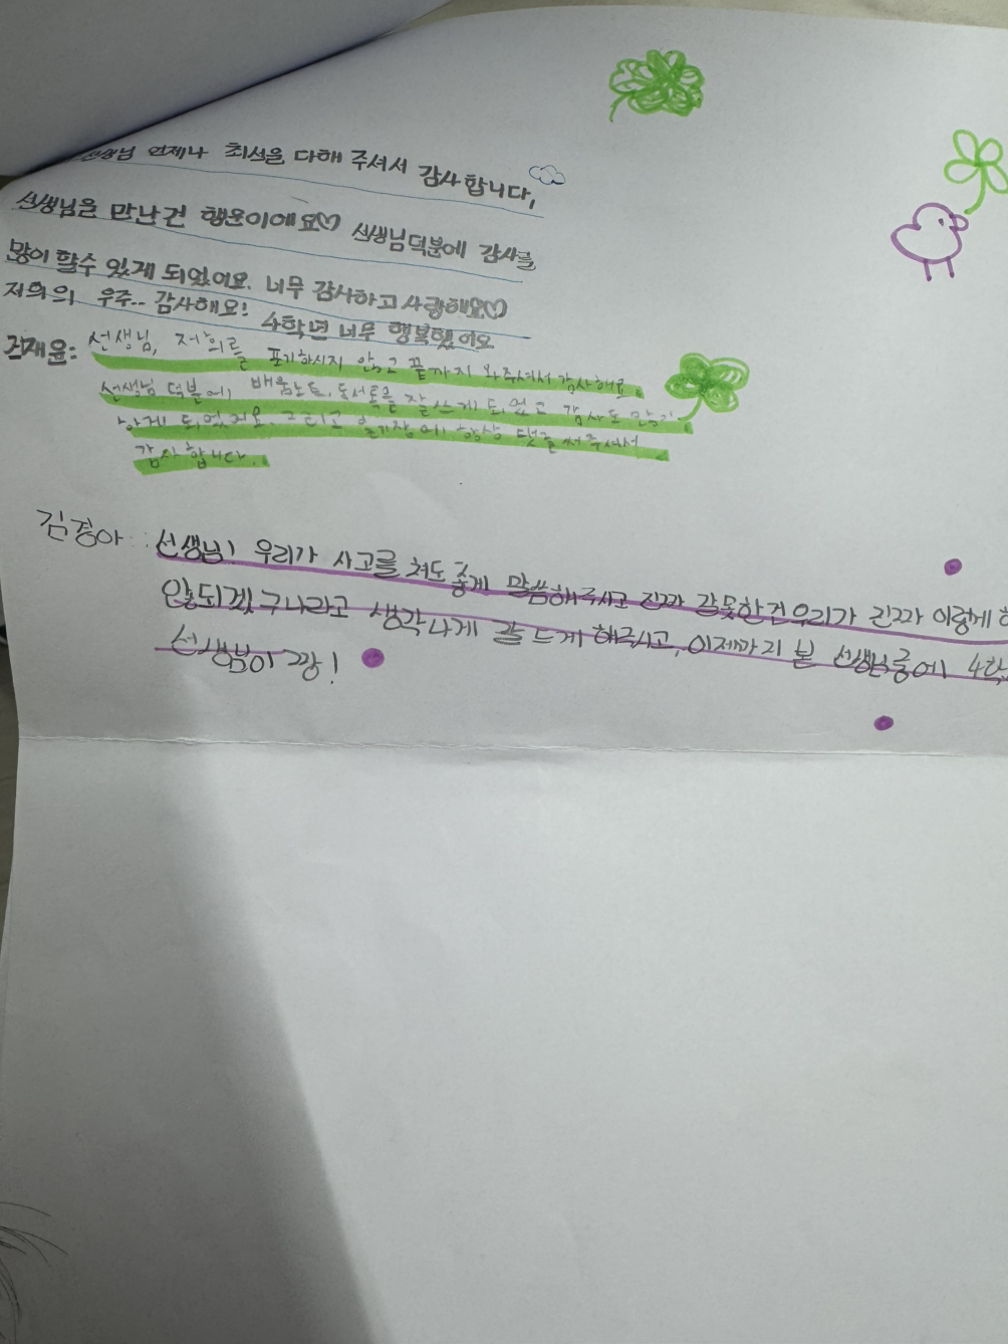 선생님 언제나 최선을 다해 주셔서 감사합니다,
선생님을 만난건 행운이에요♡ 선생님덕분에 감사를
많이 할수 있게 되었어요. 너무 감사하고 사랑해요♡
저희의 우주.. 감사해요! 4학년 너무 행복했어요
선생님, 저희를 포기하시지 않고 끝까지 와주셔서 감사해요.
선생님 덕분에, 배움노트, 독서록을 잘 쓰게 되었고 감사도 많이
하게 되었어요. 그리고 일기장에 항상 댓글 써주셔서
감사 합니다.
김경아: 선생님! 우리가 사고를 쳐도 좋게 말씀해주시고 진짜 잘못한건 우리가 진짜 이렇게
않되겠구나라고 생각나게 잘 느게 해주시고, 이제까지 본 선생님중에 4학
선생님이 짱!